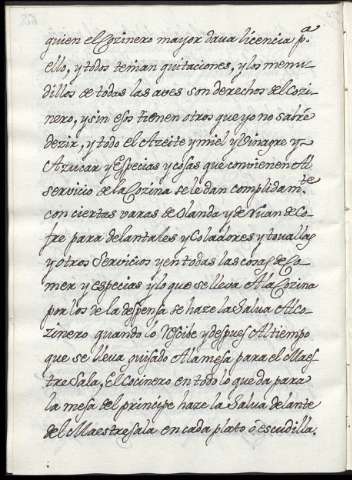 quien el Cozinero mayor dava licencia pª
ello, y todos tenian quitaciones, y los menu-
dillos de todas las aves son derechos del Cozi-
nero, y sin esso tienen otros que yo no sabre
dezir, y todo el Azeite y miel y Vinagre y
Azucar y Especias y cosas que convienen Al
servicio de la Cozina se le dan complidamte
con ciertas varas de Olanda y de Ruan de Co-
fre para delantales y Coladores y touallas
y otros Servicios y en todas las cosas de Co-
mer y especias y lo que se lleva A la Cozina
por los de la despensa se haze la Salua Al Co-
zinero quando lo Rescibe y despues Al tiempo
que se lleua guisado A la mesa para el Maes
tre Sala, El Cocinero en todo lo que da para
la mesa del principe haze la Salua delante
del Maestre sala en cada plato o escudilla.